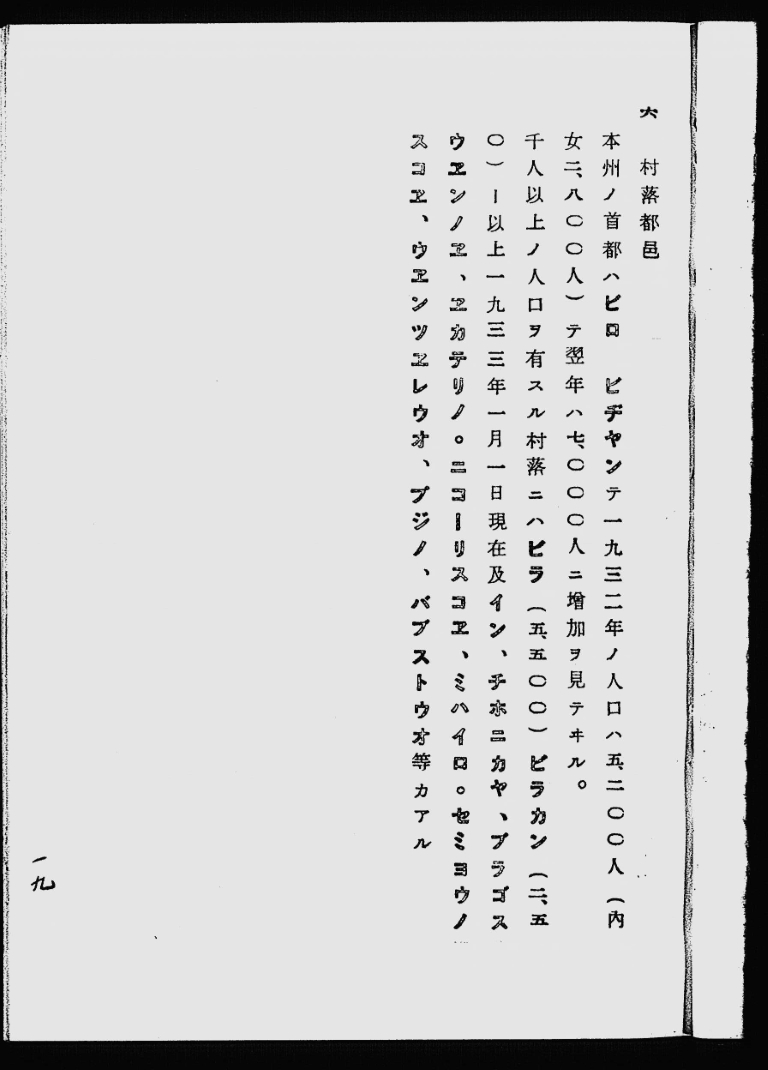 六　村落都邑
本州ノ首都ハビロ　ビヂヤンテ一九三二年ノ人口ハ五、二〇〇人（內
女二、八〇〇人）テ翌年ハ七、〇〇〇人ニ增加ヲ見テヰル。
千人以上ノ人口ヲ有スル村落ニハビラ（五、五〇〇）ビラカン（二、五
〇〇）ー以上一九三三年一月一日現在及イン、チホニカヤ、ブラゴス
ウヱンノヱ、ヱカテリノ。ニコーリスコヱ、ミハイロ。セミヨウノ
スコヱ、ウヱンツヱレウオ、ブジノ、バブストウオ等カアル
一九